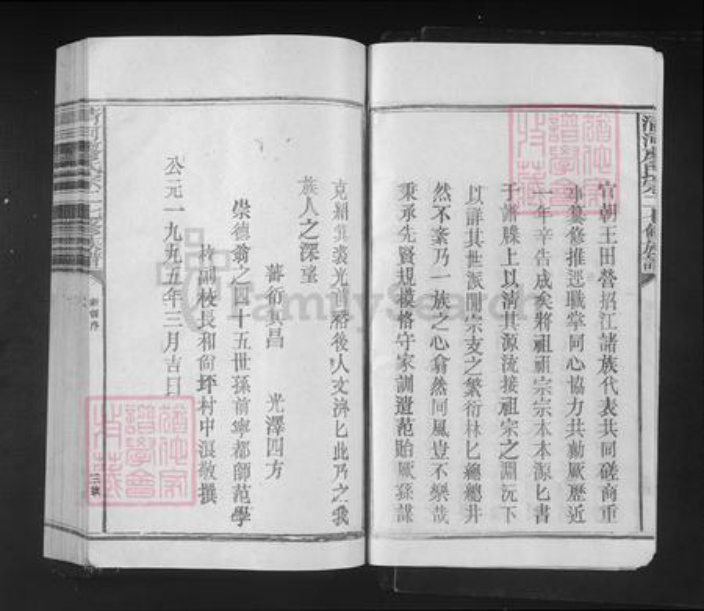 官朝王田營招江諸族代表共同磋商重
事纂修推選職掌同心協力共勷厥歷近
一年辛告成矣將祖祖宗宗本本源匕書
于譜牒上以清其源流接祖宗之淵沅下
以詳其世派開宗支之繁衍林匕總總井
然不紊乃一族之心翕然同風豈不樂哉
秉承先賢規模恪守家訓遺范貽厥孫謀
克紹箕裘光前裕後人文濟匕此乃之我
族人之深望
蕃衍其昌 光澤四方
崇德翁之四十五世孫前寧都師范學
校副校長和尙坪村中浪敬撰
公元一九九五年三月吉日
新譜序
三號
FamilySearch